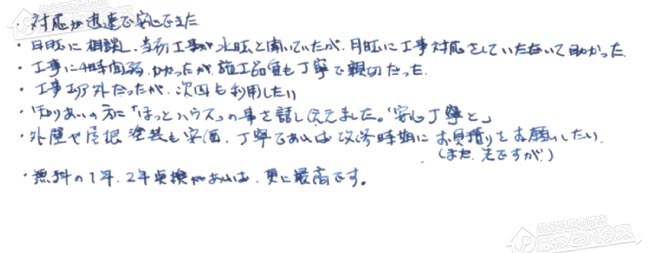 ・対応が迅速で安心できた
・日旺に相談し、当初工事が水旺と聞いていたが、月旺に工事対応をしていただいて助かった
・工事に4時間弱かかったが施工品質も丁寧で親切だった。
・工事エリア外だったが、次回も利用したい
・知りあいの方に「ほっとハウス」の事を話し伝えました。「安心丁寧と」
・外壁や屋根塗装も安価、丁寧であれば改修時期にお見積りをお願いしたい。
(まだ先ですが)
・無料の1年、2年点検があれば、更に最高です。
ほっとハウス